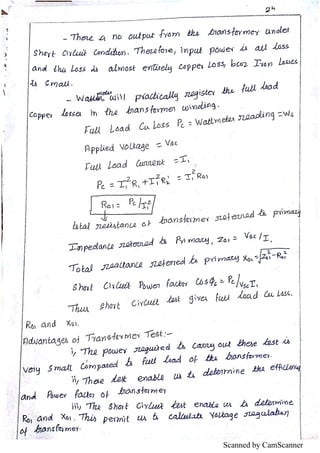 24
- There is no output from the transformer under
Short Circuit Condition. Therefore, Input power is all loss
and this Loss is almost entirely copper Loss, bcoz Iron Losses
is Small.
- Wattmeter will practically register the full load
copper losses in the transformer winding.
Full Load Cu Loss Pc = Wattmeter reading = Ws
Applied Voltage = Vsc
Full Load Current = I₁
Pc = I₁²R₁ + I₁²R₂' = I₁²R₀₁
R₀₁ = Pc/I₁²
total resistance of transformer referred to primary
Impedance referred to Primary, Z₀₁ = Vsc/I₁
Total reactance referred to primary X₀₁ = √Z₀₁² - R₀₁²
Short Circuit Power factor Cosϕs = Pc/VscI₁
Thus Short Circuit test gives full load Cu Loss.
R₀₁ and X₀₁.
Advantages of Transformer Test:-
i, The power required to carry out these test is
very Small Compared to full load of the transformer.
ii, These test enable us to determine the efficiency
and Power factor of transformer
iii, The Short Circuit test enable us to determine
R₀₁ and X₀₁. This permit us to calculate Voltage regulation
of transformer.
Scanned by CamScanner